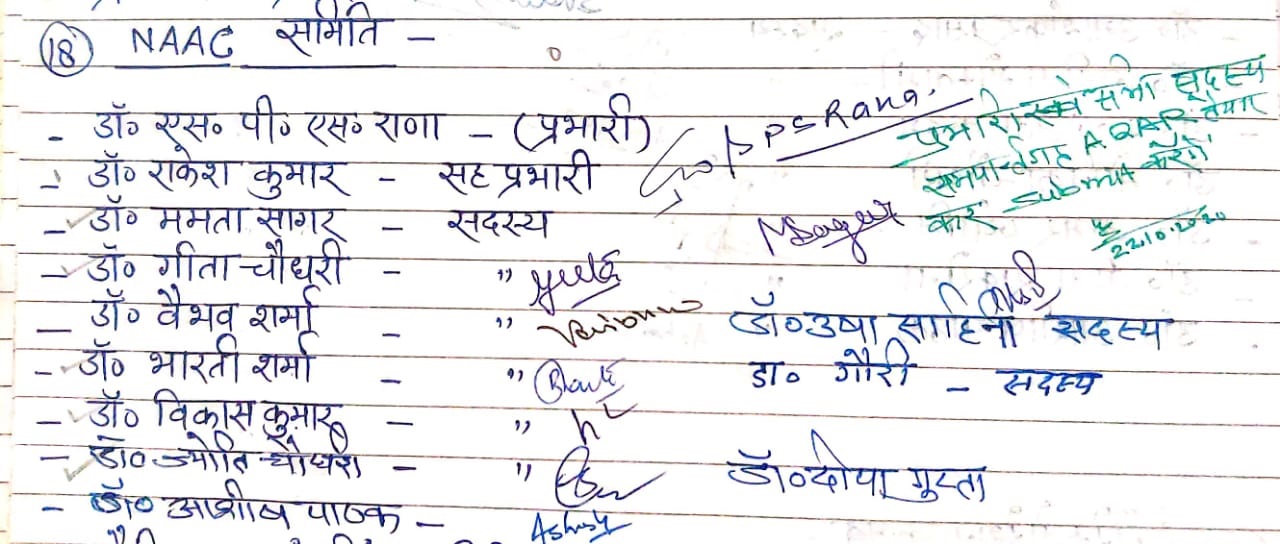 (18) NAAC समिति -
- डॉ० एस० पी० एस० राणा - (प्रभारी)
- डॉ० राकेश कुमार - सह प्रभारी
- डॉ० ममता सागर - सदस्य
- डॉ० गीता चौधरी - "
- डॉ० वैभव शर्मा - "
- डॉ० भारती शर्मा - "
- डॉ० विकास कुमार - "
- डॉ० ज्योति चौधरी - "
- डॉ० आशीष पाठक -
S P S Rana.
MSagar
Ashish
प्रभारी एवं सभी सदस्य
AQAR तैयार
कर submit करेंगे
22.10.2020
डॉ० उषा साहिनी सदस्य
डा० गौरी - सदस्य
डॉ० दीपा गुप्ता